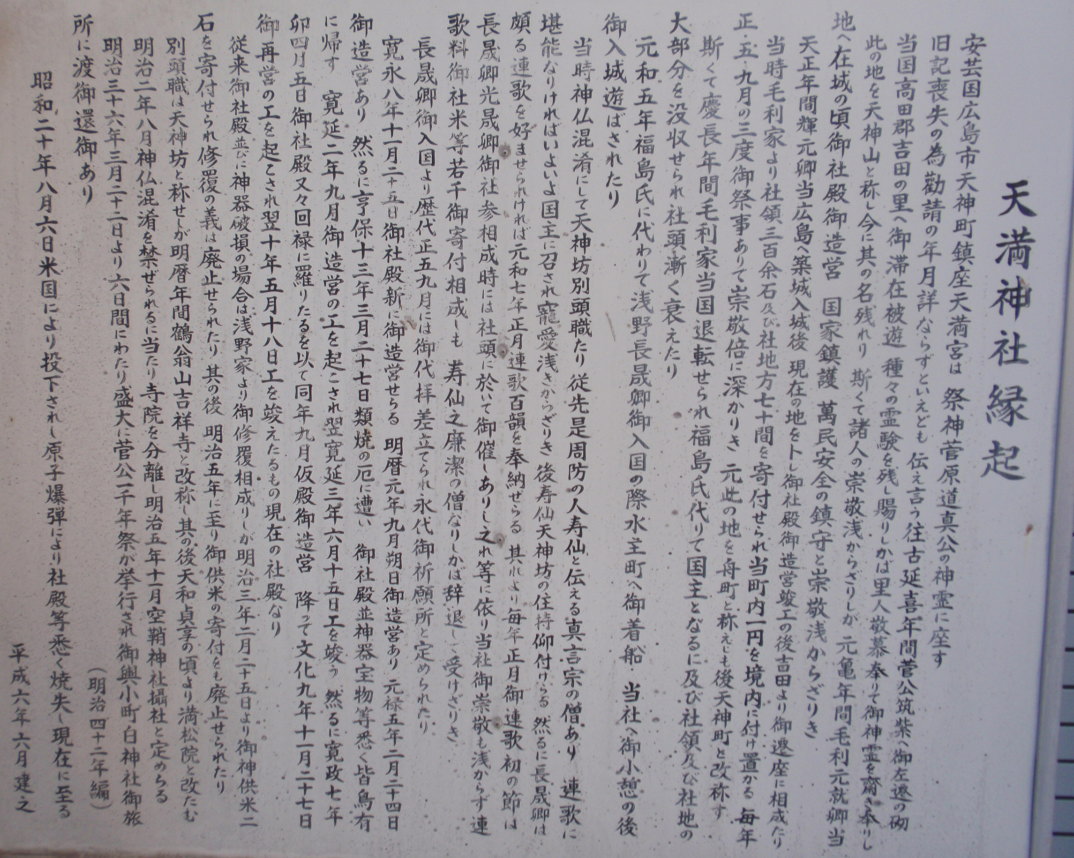 天満神社縁起
安芸国広島市天神町鎮座天満宮は 祭神菅原道真公の神霊に座す
旧記喪失の為勧請の年月詳ならずといえども 伝え言う往古延喜年間菅公筑紫へ御左遷の砌
当国高田郡吉田の里へ御滞在被遊 種々の霊験を残し賜りしかば里人敬慕奉りて御神霊を齋き奉りし
此の地を天神山と称し今に其の名残れり 斯くて諸人の崇敬浅からざりしが 元亀年間毛利元就卿当
地へ在城の頃御社殿御造営 国家鎮護 萬民安全の鎮守と崇敬浅からざりき
天正年間輝元卿当広島へ築城入城後 現在の地を卜し御社殿御造営竣工の後吉田より御遷座に相成たり
当時毛利家より社領三百余石及び社地方七十間を寄付せられ当町内一円を境内に付け置かる 毎年
正・五・九月の三度御祭事ありて崇敬倍に深かりき 元此の地を舟町と称えしも後天神町と改称す
斯くて慶長年間毛利家当国退転せられ福島氏代りて国主となるに及び社領及び社地の
大部分を没収せられ社頭漸く衰えたり
元和五年福島氏に代わりて浅野長晟卿御入国の際水主町へ御着船 当社へ御小憩の後
御入城遊ばされたり
当時神仏混淆にして天神坊別頭職たり 従先是周防の人寿仙と伝える真言宗の僧あり 連歌に
堪能なりければいよいよ国主に召され寵愛浅きからざりき 後寿仙天神坊の住持仰付けらる 然るに長晟卿は
頗る連歌を好ませられければ元和七年正月連歌百韻を奉納ぜらる 其れより毎年正月御連歌初の節は
長晟卿光晟卿御社参相成時には社頭に於いて御催しありし之れ等に依り当社御崇敬も浅からず連
歌料御社米等若干御寄付相成しも 寿仙之廉潔の僧なりしかば辞退して受けざりき
長晟卿御入国より歴代正五九月には御代拝差立てられ永代御祈願所と定められたり
寛永八年十一月二十五日御社殿新に御造営せらる 明暦元年九月朔日御造営あり 元禄五年二月二十四日
御造営あり 然るに享保十三年三月二十七日類焼の厄に遭い 御社殿並神器宝物等悉く皆烏有
に帰す 寛延二年九月御造営の工を起こされ翌寛延三年六月十五日工を竣う 然るに寛政七年
卯四月五日御社殿又々回禄に罹りたるを以て同年九月仮殿御造営 降って文化九年十一月二十七日
御再営の工を起こされ翌十年五月十八日工を竣えたるもの現在の社殿なり
従来御社殿並びに神器破損の場合は浅野家より御修覆相成りしが明治三年二月二十五日より御神供米二
石を寄付せられ修覆の義は廃止せられたり 其の後 明治五年に至り御供米の寄付をも廃止せられたり
別頭職は天神坊と称せしが明暦年間鶴翁山吉祥寺と改称し其の後天和貞享の頃より満松院と改たむ
明治二年八月神仏混淆を禁ぜられるに当たり寺院を分離し明治五年十一月空鞘神社攝社と定めらる
明治三十六年三月二十二日より六日間にわたり盛大に菅公一千年祭が挙行され 御輿小町白神社御旅
所に渡御還御あり
(明治四十二年編)
昭和二十年八月六日米国により投下されし原子爆弾により社殿等悉く焼失し現在に至る
平成六年六月建之